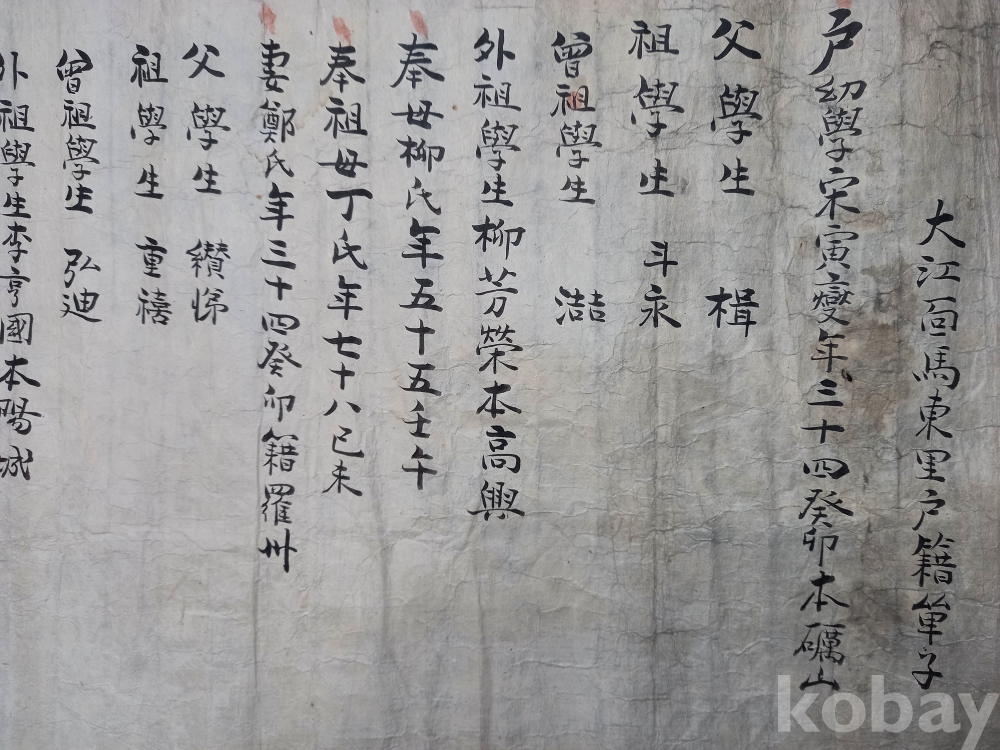 大江面馬東里戶籍單子
戶幼學宋寅燮年三十四癸卯本礪山
父學生 楫
祖學生 斗永
曾祖學生 喆
外祖學生柳芳榮本高興
奉母柳氏年五十五壬午
奉祖母丁氏年七十八己未
妻鄭氏年三十四癸卯籍羅州
父學生 纉悌
祖學生 重禧
曾祖學生 弘迪
外祖學生李亨國本陽城
kobay